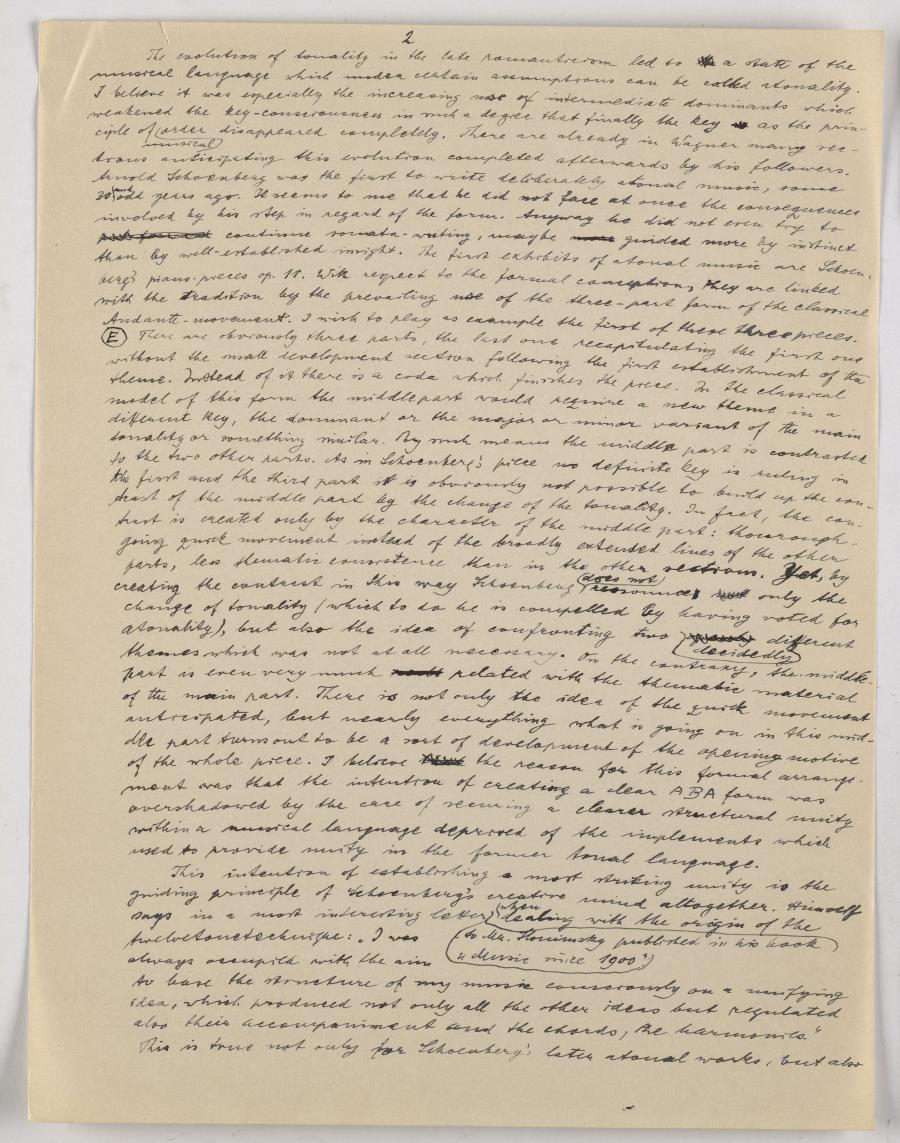 2
The evolution of tonality in the late romanticism led to a state of the
musical language which under certain assumptions can be called atonality.
I believe it was especially the increasing use of intermediate dominants which
weakened the key-consciousness in such a degree that finally the key as the prin-
ciple of musical order disappeared completely. There are already in Wagner many sec-
tions anticipating this evolution completed afterwards by his followers.
Arnold Schoenberg was the first to write deliberately atonal music, some
30 and odd years ago. It seems to me that he did not face at once the consequences
involved by his step in regard of the form. Anyway he did not even try to
continue sonata-writing, maybe guided more by instinct
than by well-established insight. The first exhibits of atonal music are Schoen-
berg's piano-pieces op. 11. With respect to the formal conception, they are linked
with the tradition by the prevailing use of the three-part form of the classical
Andante-movement. I wish to play as example the first of these three pieces.
(E) There are obviously three parts, the last one recapitulating the first one
without the small development section following the first establishment of the
theme. Instead of it there is a coda which finishes the piece. In the classical
model of this form the middlepart would require a new theme in a
different key, the dominant or the major or minor variant of the main
tonality or something similar. By such means the middle part is contrasted
to the two other parts. As in Schoenberg's piece no definite key is ruling in
the first and the third part it is obviously not possible to build up the con-
trast of the middle part by the change of the tonality. In fact, the con-
trast is created only by the character of the middle part: thorough-
going quick movement instead of the broadly extended lines of the other
parts, less thematic consistence than in the other sections. Yet, by
creating the contrast in this way Schoenberg does not renounce only the
change of tonality (which to do he is compelled by having voted for
atonality), but also the idea of confronting two decidedly different
themes which was not at all necessary. On the contrary, the middle
part is even very much related with the thematic material
of the main part. There is not only the idea of the quick movement
anticipated, but nearly everything what is going on in this mid-
dle part turns out to be a sort of development of the opening motive
of the whole piece. I believe the reason for this formal arrange-
ment was that the intention of creating a clear ABA form was
overshadowed by the care of securing a clearer structural unity
within a musical language deprived of the implements which
used to provide unity in the former tonal language.
This intention of establishing a most striking unity is the
guiding principle of Schoenberg's creative mind altogether. Himself
says in a most interesting letter when dealing with the origin of the
twelvetonetechnique: „I was (to Mr. Slonimsky published in his book
always occupied with the aim „Music since 1900")
to base the structure of my music consciously on a unifying
idea, which produced not only all the other ideas but regulated
also their accompaniment and the chords, the harmonies."
This is true not only for Schoenberg's later atonal works, but also